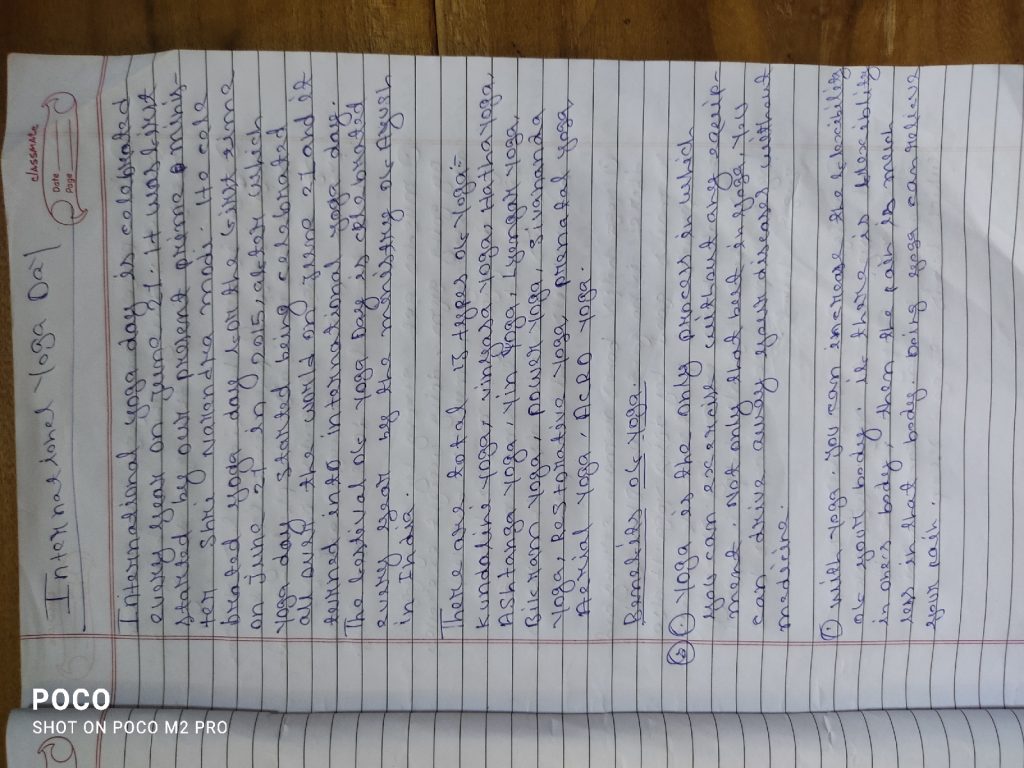 classmate
Date
Page
International Yoga Day
International yoga day is celebrated
every year on june 21. It was first
started by our present prime minis-
ter shri Narendra modi. He cele
brated yoga day for the first time
on june 21 in 2015, after which
yoga day started being celebrated
all over the world on june 21 and it
turned into international yoga day.
The festival of yoga Day is celebrated
every year by the ministry of Ayush
in India.
There are total 13 types of yoga:-
Kundaline yoga, vinyasa yoga, Hatha yoga,
Ashtanga yoga, yin yoga, Iyengar yoga,
Bikram yoga, power yoga, Sivananda
yoga, Restorative yoga, prenatal yoga,
Aerial yoga, Acro yoga.
Benefies of yoga.
yoga is the only process in which
you can exercise without any equip-
ment. Not only that but in yoga you
can drive away your diseases without
medicine.
with yoga you can increase the flexibility
of your body, if there is flexibility
in ones body, then the pain is much
less in that body. Doing yoga can relieve
your pain.
POCO
SHOT ON POCO M2 PRO